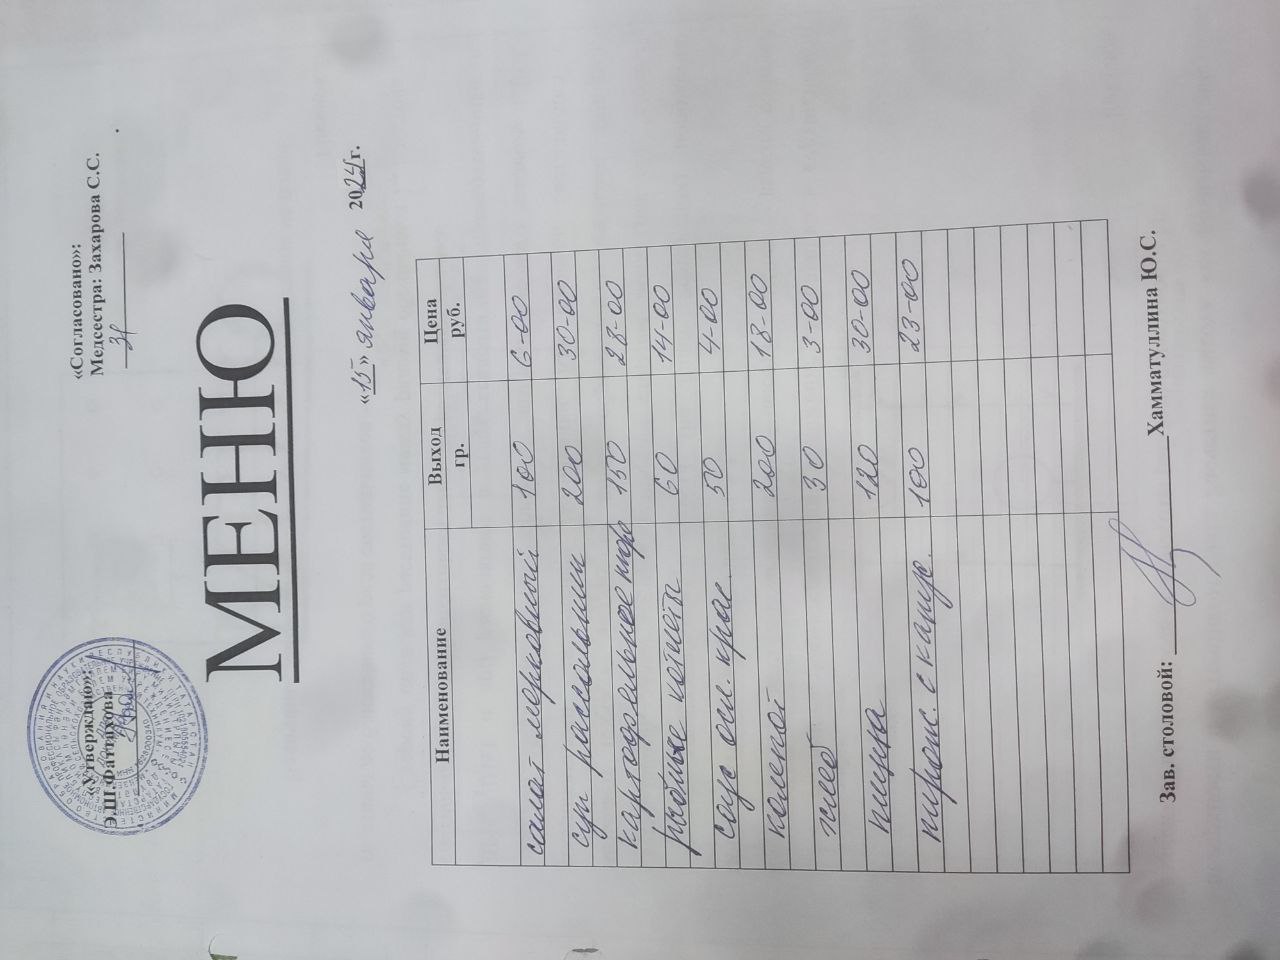 «Утверждаю»:
Э.Ш.Фаттахова
«Согласовано»:
Медсестра: Захарова С.С.
МЕНЮ
«15» января 2024г.
Наименование Выход гр. Цена руб.
салат морковный 100 6-00
суп рассольник 200 30-00
картофельное пюре 150 28-00
рыбные котлеты 60 14-00
соус осн. крас. 50 4-00
компот 200 18-00
хлеб 30 3-00
пицца 120 30-00
пирож. с капус. 100 23-00
Зав. столовой: Хамматуллина Ю.С.